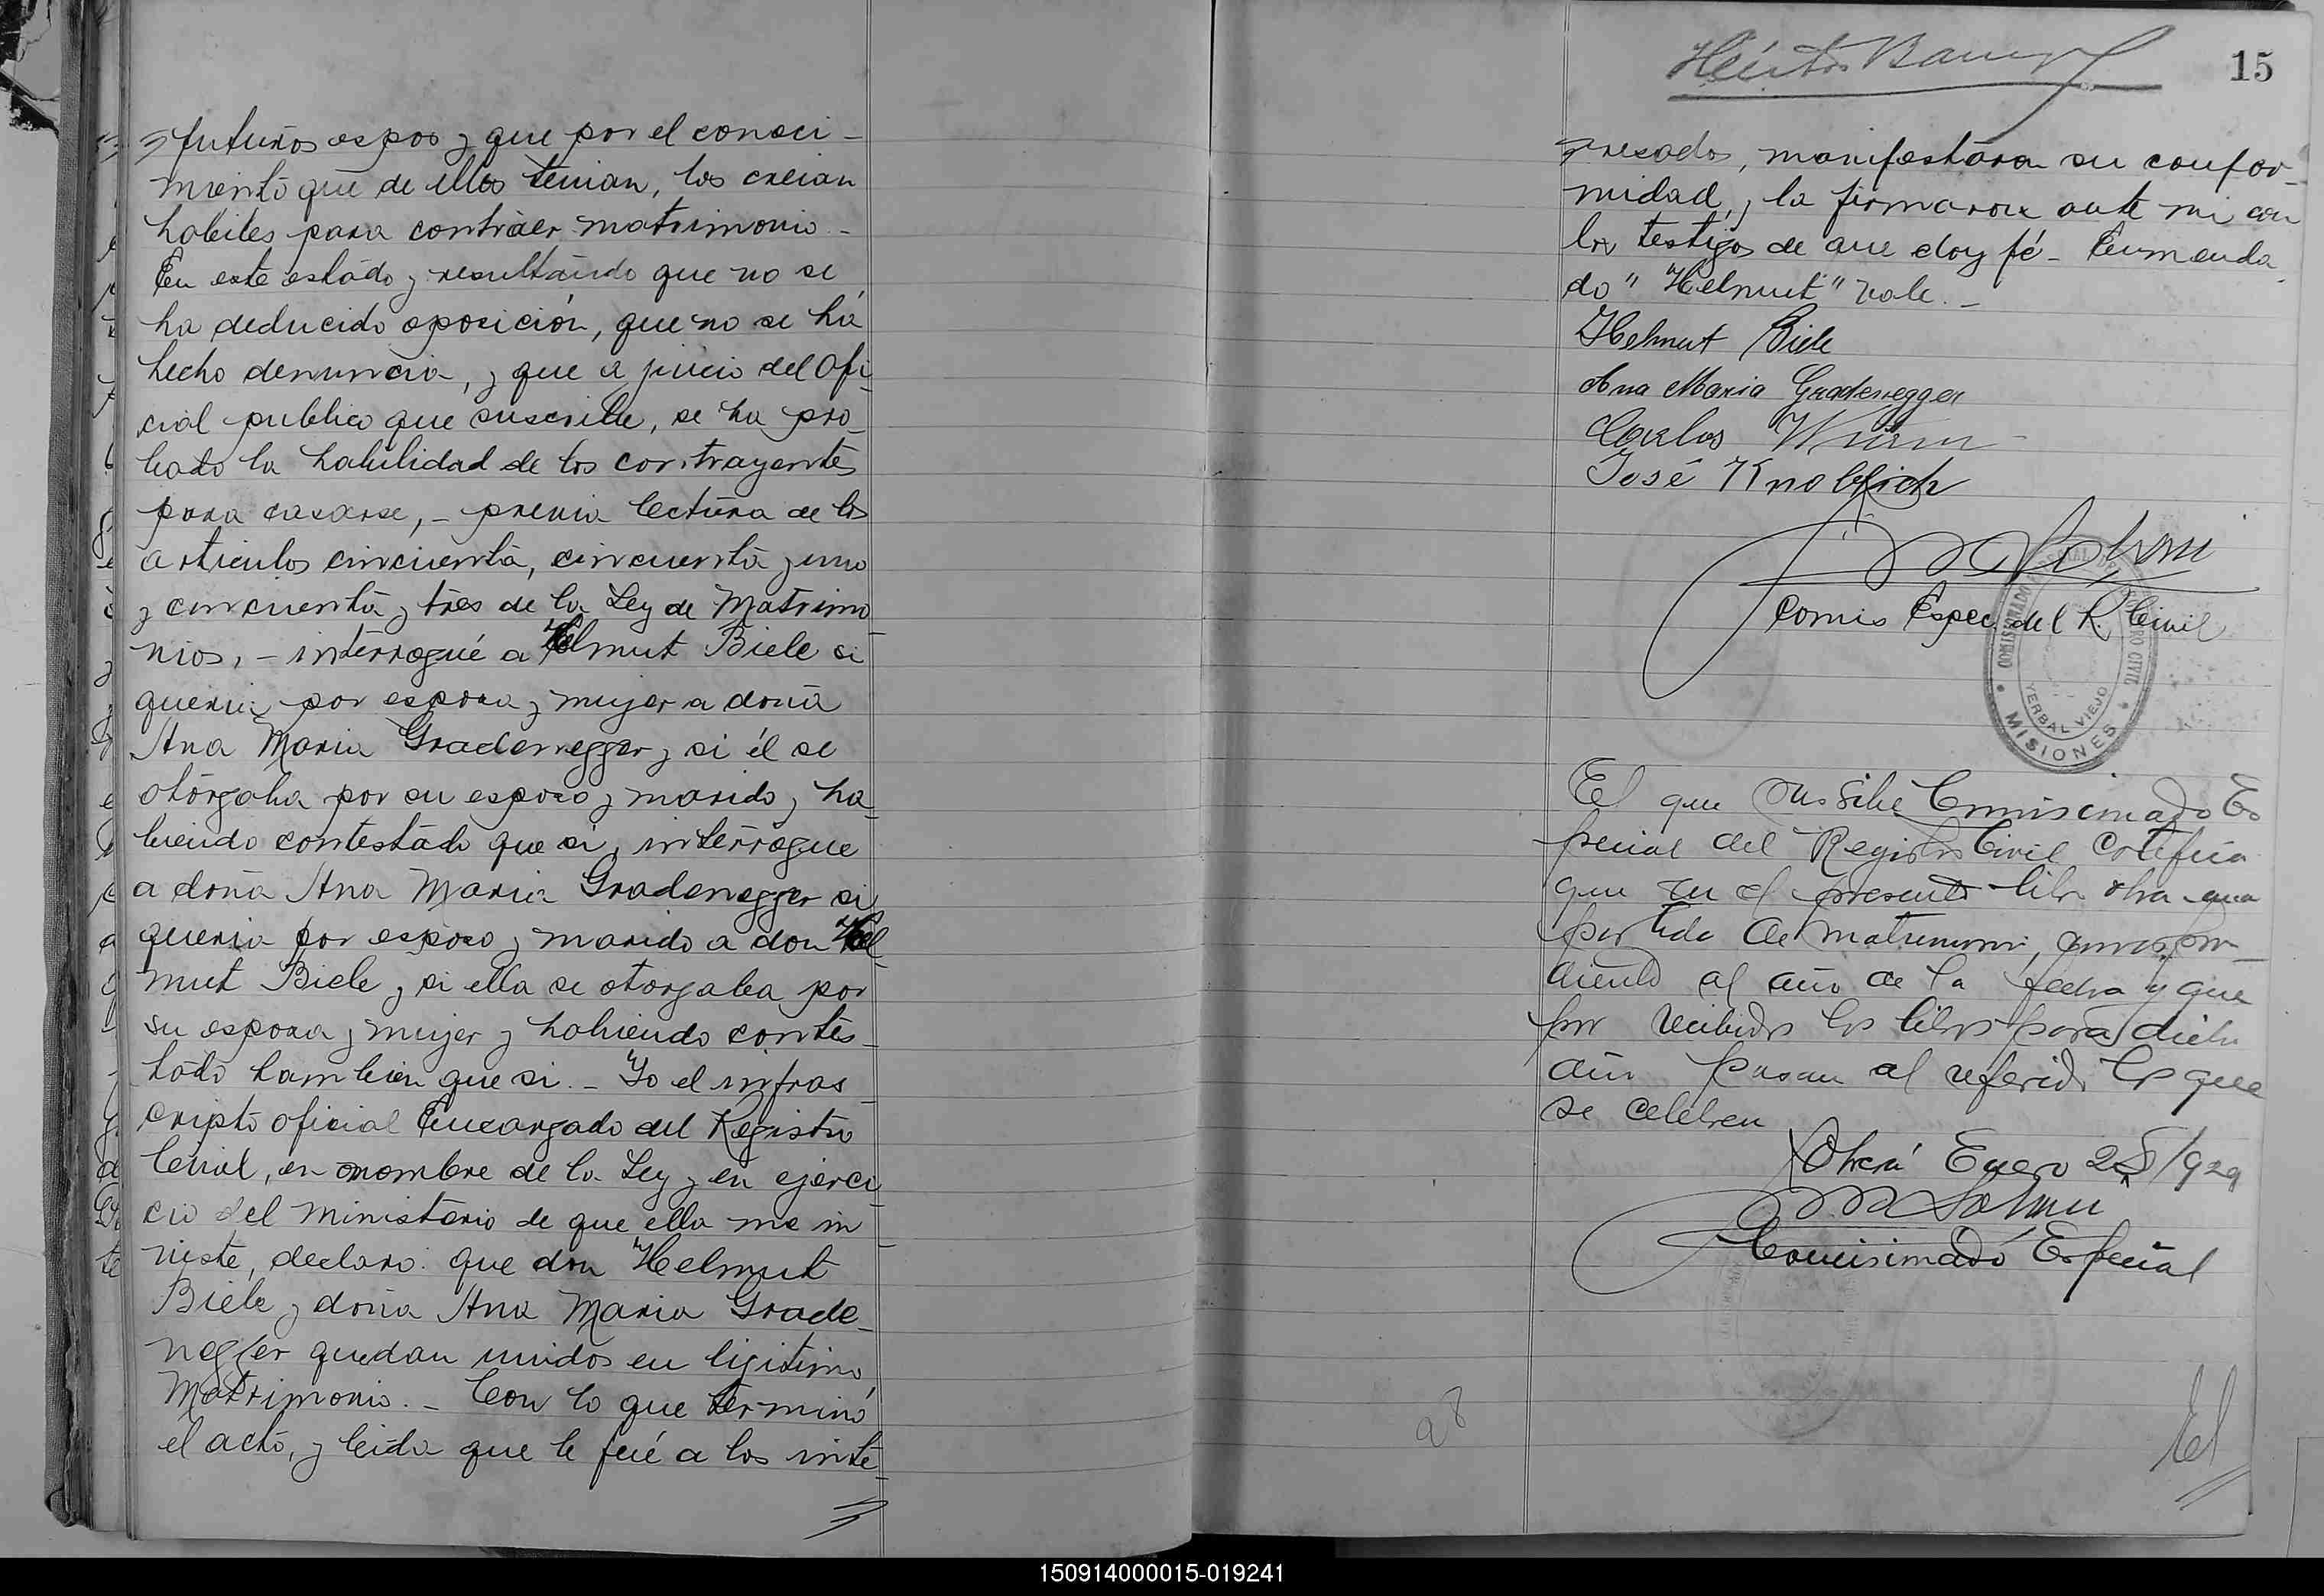 futuros espos y que por el conoci-
miento que de ellos tenian, los creian
habiles para contraer matrimonio.-
En este estado y resultando que no se
ha deducido oposición, que no se há
hecho denuncia, y que a juicio del Ofi
cial publico que suscribe, se ha pro-
bado la habilidad de los contrayentes
para casarse,- previa lectura de los
articulos cincuenta, cincuenta y uno
y cincuenta y tres de la Ley de Matrimo-
nios,- interrogué a Helmut Biele si
queria por esposa y mujer a doña
Ana Maria Gradenegger y si él se
otorgaba por su esposo y marido y ha-
biendo contestado que si, interrogue
a doña Ana Maria Gradenegger si
queria por esposo y marido a don Hel-
mut Biele y si ella se otorgaba por
su esposa y mujer y habiendo contes-
tado tambien que si.- Yo el infras-
cripto oficial Encargado del Registro
Civil, en nombre de la Ley y en ejerci-
cio del ministerio de que ella me in-
viste, declaro: que don Helmut
Biele y doña Ana Maria Grade-
negger quedan unidos en ligitimo
Matrimonio.- Con lo que terminó
el acto, y leida que le fué a los inte-
15
resados, manifestaron su confor-
midad, y la firmaron ante mi con
los testigos de que doy fé- Enmenda-
do "Helmut" vale.-
Helmut Biele
Ana Maria Gradenegger
Carlos Wurm
José Knoblich
Comis Espec. del R. Civil
COMISIONADO REGISTRO CIVIL
YERBAL VIEJO
MISIONES
El que suscribe Comisionado Es
pecial del Registro Civil Certifica
que en el presente libro obra una
partida de matrimonio,
al año de la fecha y que
por recibidos los libros para dicho
año pasan al referido los que
se celebren
Oberá Enero 28/929
Comisionado Especial
98
150914000015-019241